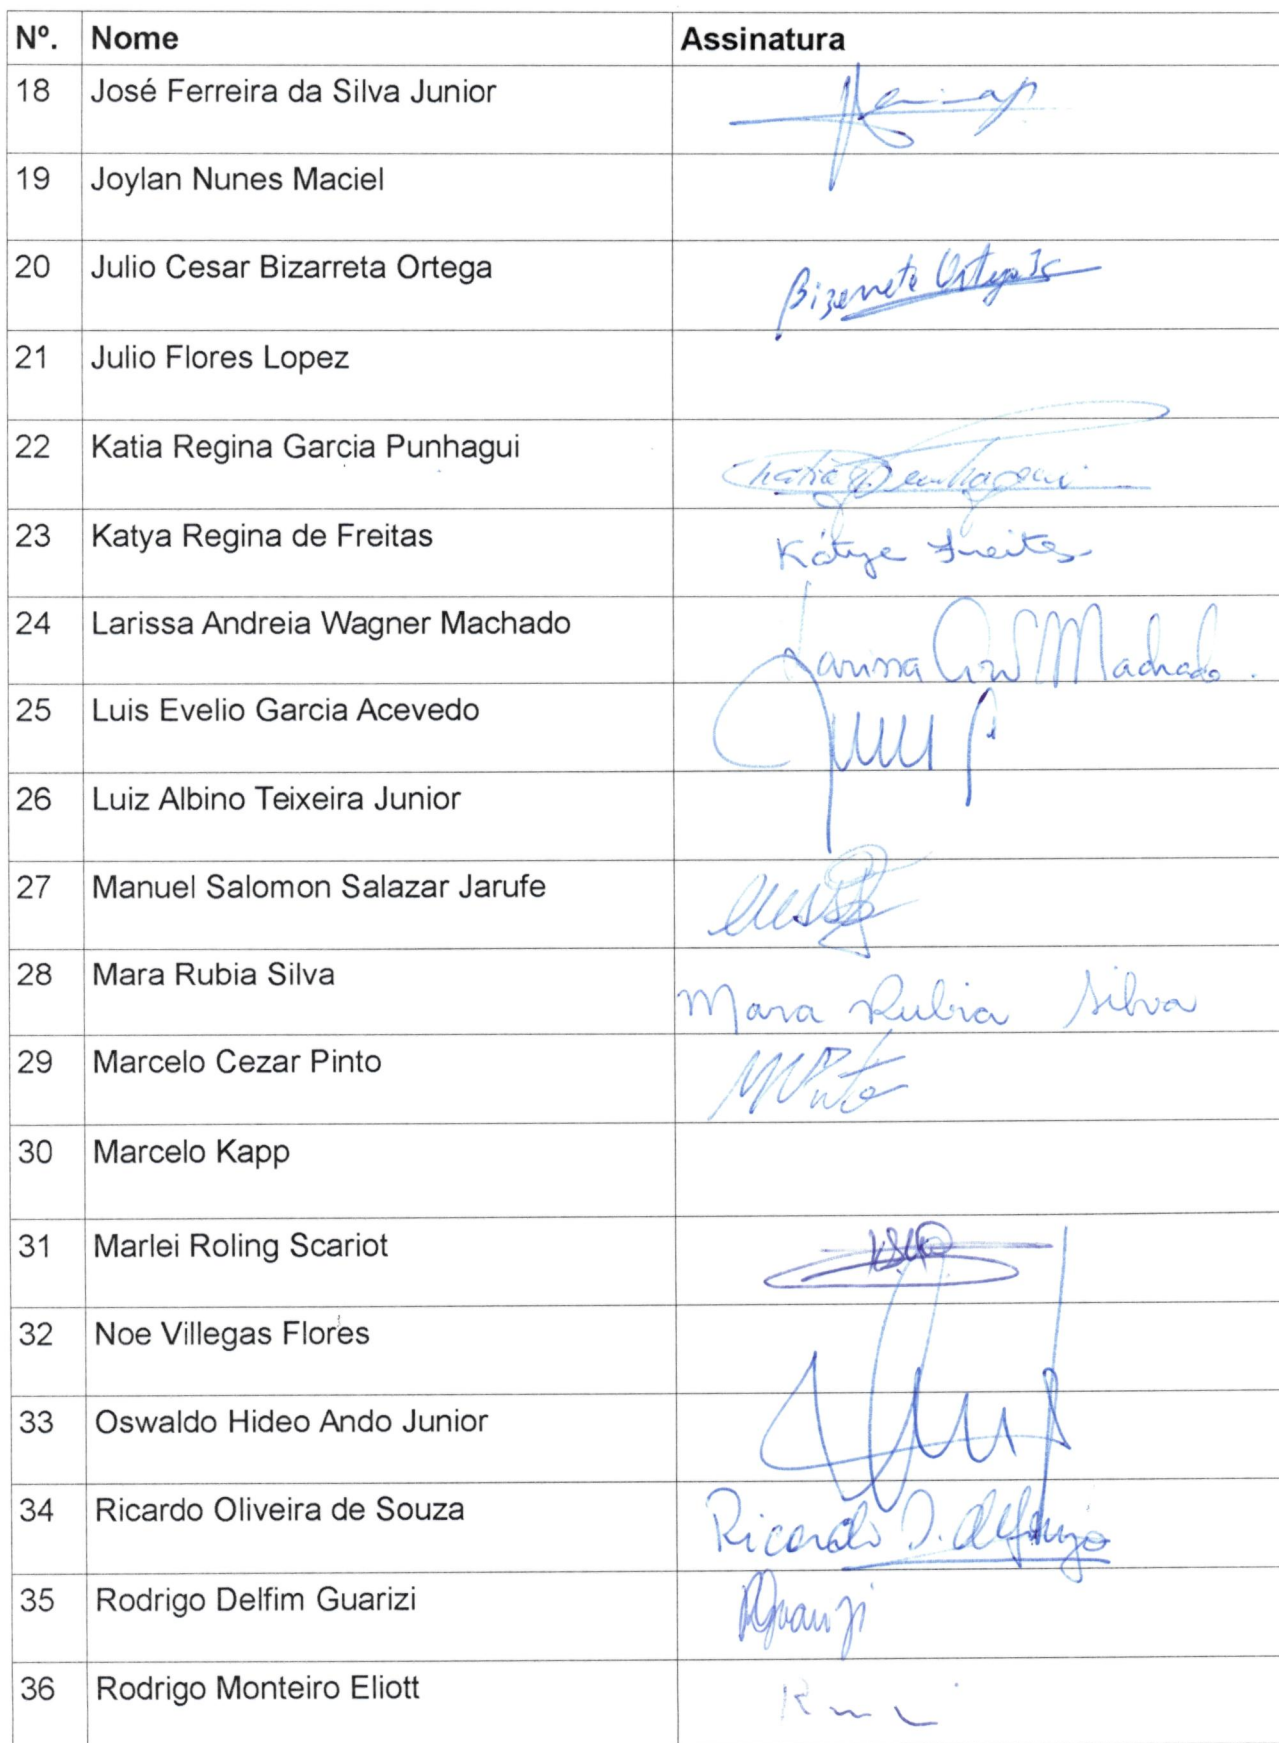 Nº. Nome Assinatura
18 José Ferreira da Silva Junior
19 Joylan Nunes Maciel
20 Julio Cesar Bizarreta Ortega Bizarreta Ortega Jc
21 Julio Flores Lopez
22 Katia Regina Garcia Punhagui Katia Punhagui
23 Katya Regina de Freitas Kátya Freitas
24 Larissa Andreia Wagner Machado Larissa AW Machado.
25 Luis Evelio Garcia Acevedo
26 Luiz Albino Teixeira Junior
27 Manuel Salomon Salazar Jarufe
28 Mara Rubia Silva Mara Rubia Silva
29 Marcelo Cezar Pinto MPinto
30 Marcelo Kapp
31 Marlei Roling Scariot
32 Noe Villegas Flores
33 Oswaldo Hideo Ando Junior
34 Ricardo Oliveira de Souza Ricardo
35 Rodrigo Delfim Guarizi RGuarizi
36 Rodrigo Monteiro Eliott